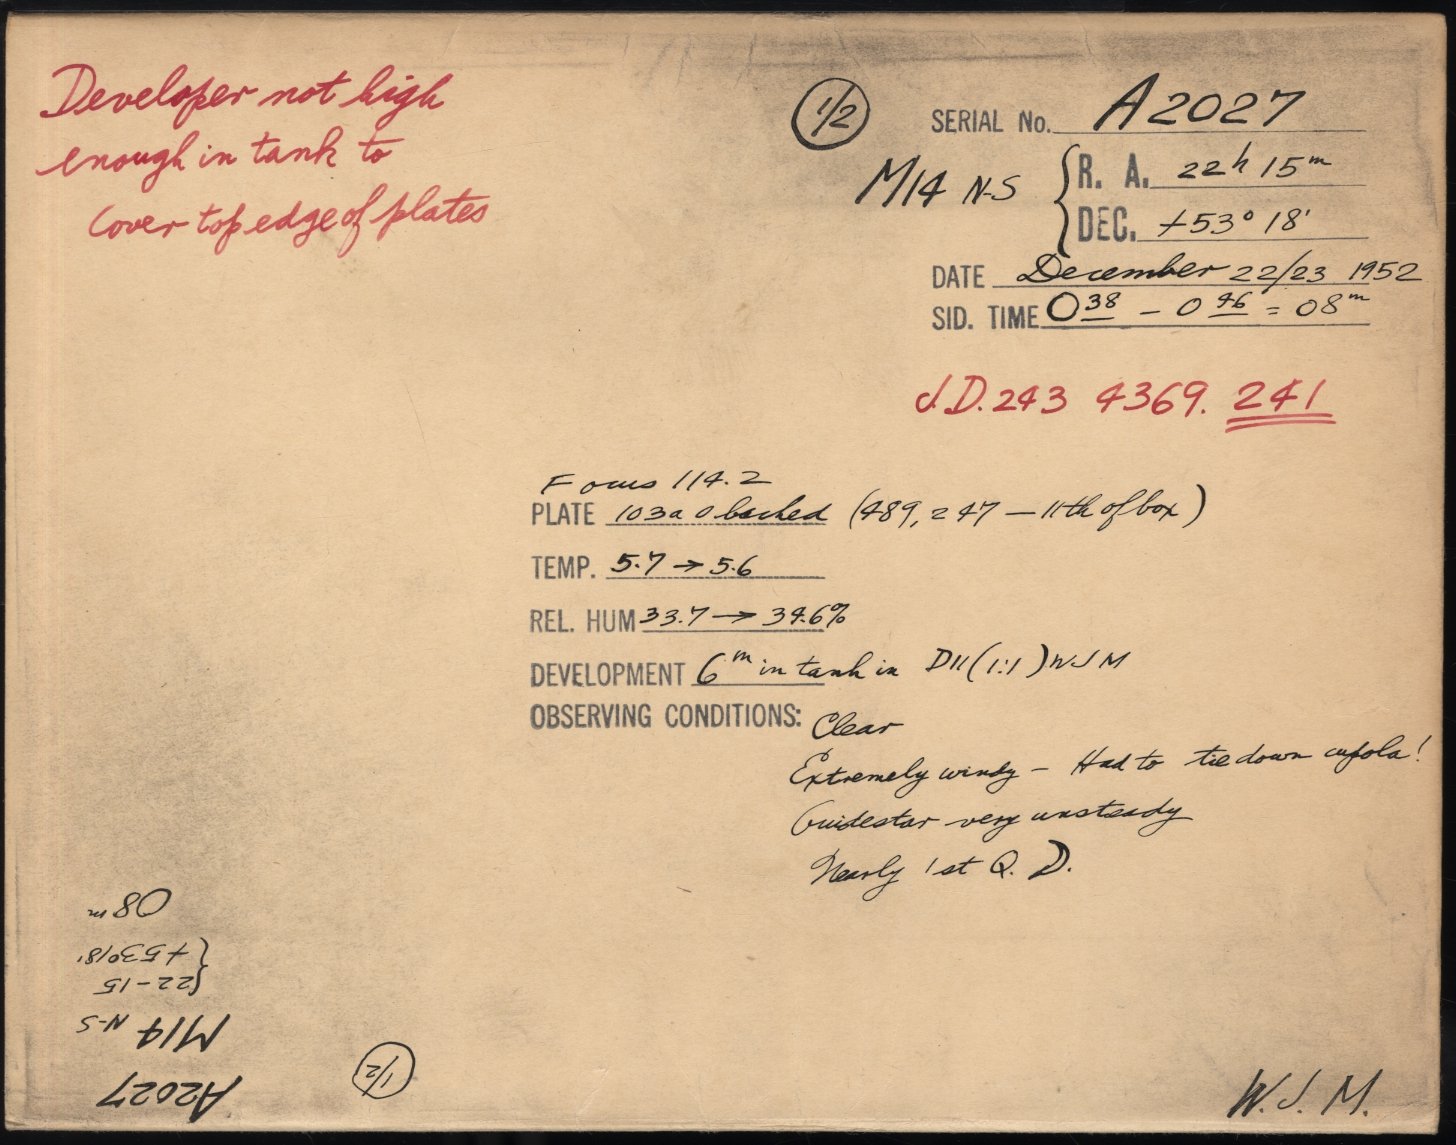 Developer not high
enough in tank to
cover top edge of plates
1/2
SERIAL No. A2027
M14 N-S
R. A. 22h 15m
DEC. +53° 18'
DATE December 22/23 1952
SID. TIME 0 38 – 0 46 = 08m
J.D. 243 4369. 241
Focus 114.2
PLATE 103a O backed (489, 247 — 11th of box)
TEMP. 5.7 → 5.6
REL. HUM 33.7 → 34.6%
DEVELOPMENT 6m in tank in D11 (1:1) WJM
OBSERVING CONDITIONS: Clear
Extremely windy – Had to tie down cupola!
Guidestar very unsteady
Nearly 1st Q. D.
A2027
1/2
M14 N-S
22-15
+53°18'
08m
W. J. M.